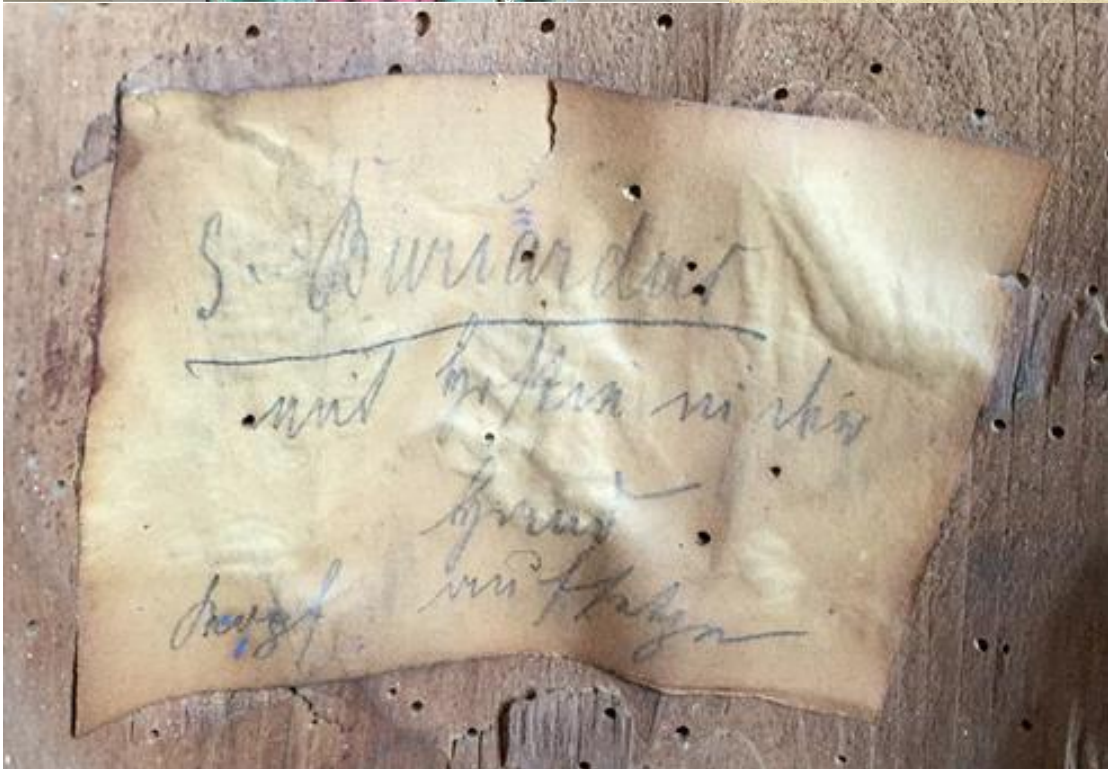 S. Burcardus
mit Hostien in der
Hand
Kopf aufsetzen